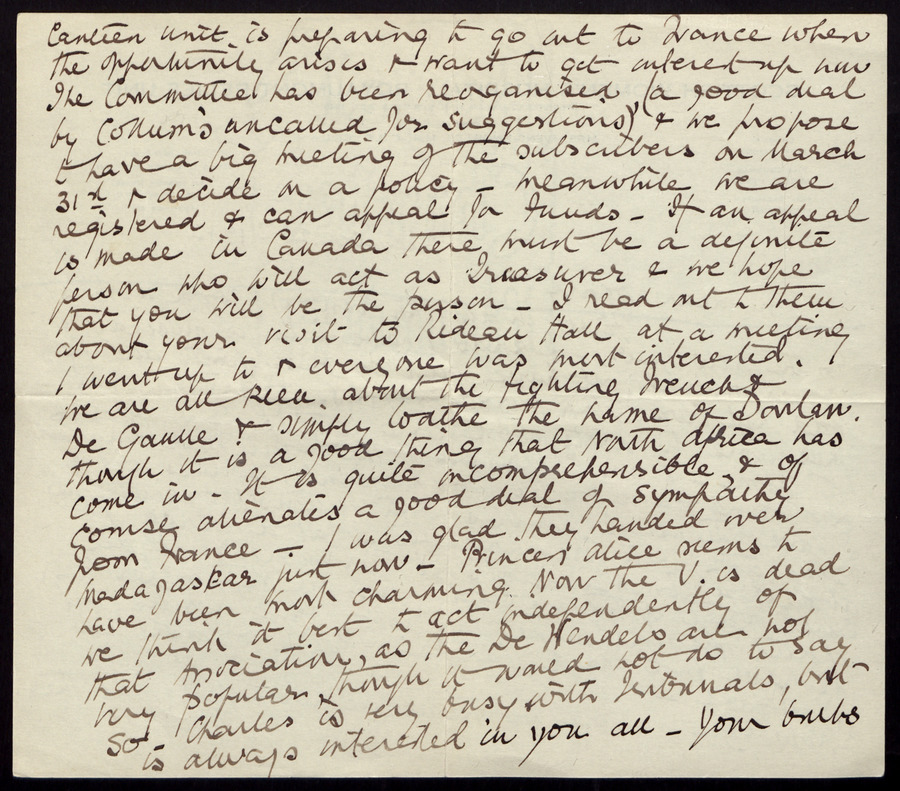 Canteen unit is preparing to go out to France when
the opportunity arises & want to get interest up now
The Committee has been reorganised (a good deal
by Collum's uncalled for suggestions) & we propose
to have a big meeting of the subscribers on March
31st & decide on a policy – meanwhile we are
registered & can appeal for funds – If an appeal
is made in Canada there must be a definite
person who will act as Treasurer & we hope
that you will be the person – I read out to them
about your visit to Rideau Hall at a meeting
I went up to & everyone was most interested.
We are all keen about the Fighting French &
De Gaulle & simply loathe the name of Darlan.
though it is a good thing that North Africa has
come in. It is quite incomprehensible & of
course alienates a good deal of sympathy
from France – I was glad they handed over
Madagascar just now – Princess Alice seems to
have been most charming. Now the V. is dead
we think it best to act independently of
that Association, as the De Wendels are not
very popular, though it would not do to say
so – Charles is very busy with Testimonials, but
is always interested in you all – Your